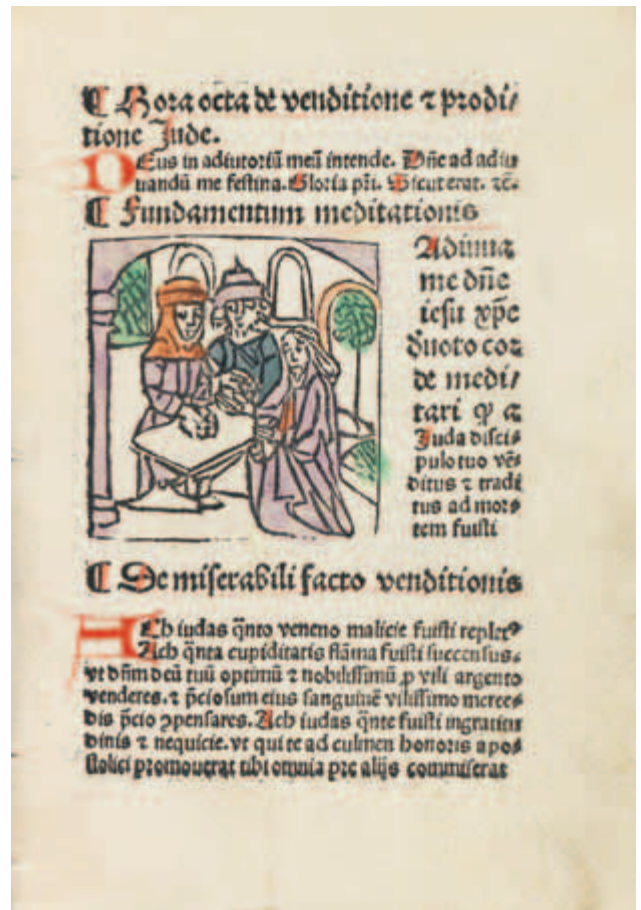 ¶ Hora octa de venditione ⁊ prodi/
tione Jude.
DEus in adiutoriū meū intende. Dñe ad adiu
uandū me festina. Gloria pr̄i. Sicut erat. ⁊c̄.
¶ Fundamentum meditationis
Adiuua
me dn̄e
iesu xp̄e
deuoto cor
de medi/
tari ꝙ a
Juda disci
pulo tuo vē
ditus ⁊ tradi
tus ad mor
tem fuisti
¶ De miserabili facto venditionis
ACh iudas q̄nto veneno malicie fuisti replet⁹
Ach q̄nta cupiditatis flāma fuisti succensus.
vt dn̄m deū tuū optimū ⁊ nobilissimū ꝓ vili argento
venderes. ⁊ p̄ciosum eius sanguinē vilissimo merce
dis p̄cio ꝯpensares. Ach iudas q̄nte fuisti ingratitu
dinis ⁊ nequicie. vt qui te ad culmen honoris apos
stolici promouerat tibi omnia pre alijs commiserat